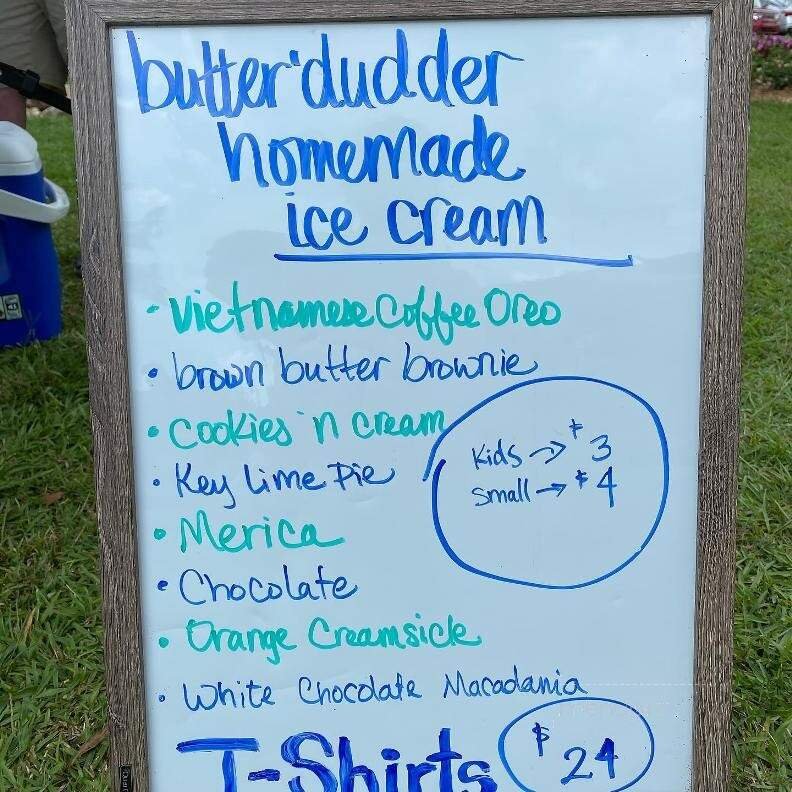 butter'dudder
homemade
ice cream
• Vietnamese Coffee Oreo
• brown butter brownie
• Cookies 'n cream
Kids → $3
• Key Lime Pie
Small → $4
• Merica
• Chocolate
• Orange Creamsicle
• White Chocolate Macadamia
T-Shirts $24